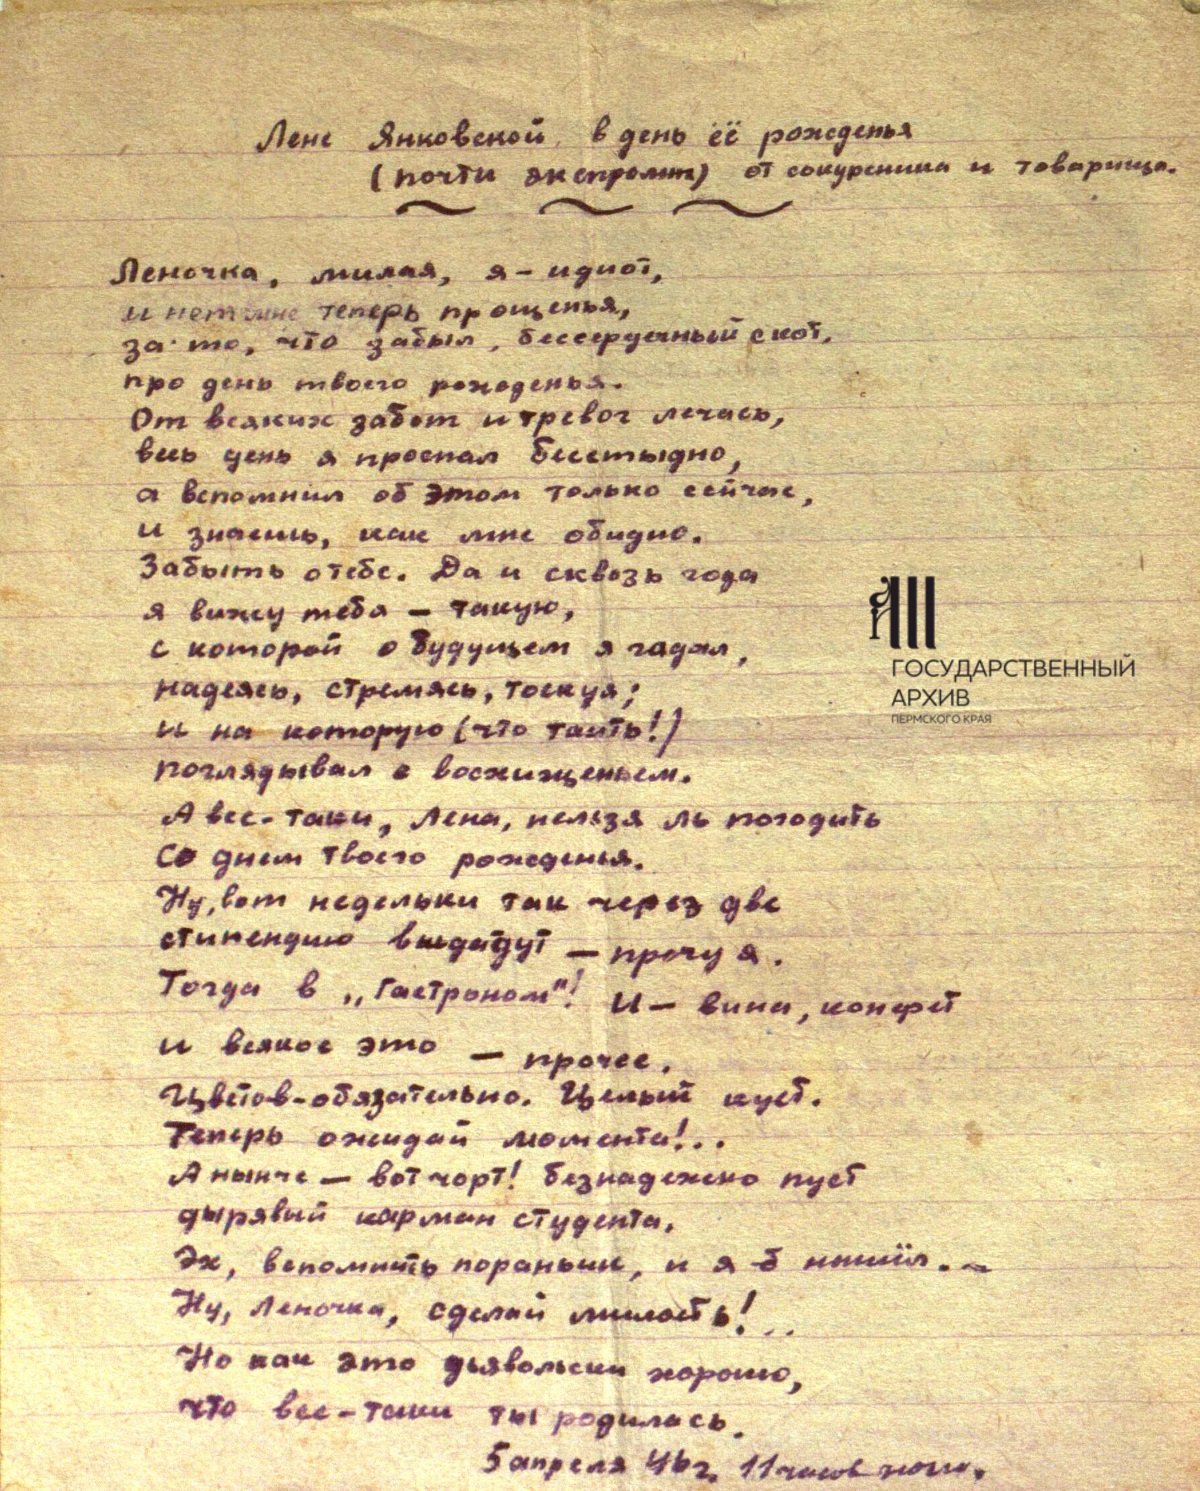 Лене Янковской в день её рожденья
(почти экспромт) от сокурсника и товарища.
Леночка, милая, я – идиот,
и нет мне теперь прощенья,
за то, что забыл, бессердечный скот,
про день твоего рожденья.
От всяких забот и тревог лечась,
весь день я проспал бесстыдно,
а вспомнил об этом только сейчас,
и знаешь, как мне обидно.
Забыть о тебе. Да и сквозь года
я вижу тебя – такую,
с которой о будущем я гадал,
надеясь, стремясь, тоскуя;
и на которую (что таить!)
поглядывал с восхищеньем.
А все-таки, Лена, нельзя ль погодить
Со днем твоего рожденья.
Ну, вот недельки так через две
стипендию выдадут – прочу я.
Тогда в „Гастроном"! И – вина, конфет
и всякое это – прочее.
Цветов-обязательно. Целый куст.
Теперь ожидай момента!..
А нынче – вот чорт! безнадежно пуст
дырявый карман студента.
Эх, вспомнить пораньше, и я б
Ну, Леночка, сделай милость!..
Но как это дьявольски хорошо,
что все-таки ты родилась.
5 апреля 46 г. 11 часов ночи.
ГОСУДАРСТВЕННЫЙ
АРХИВ
ПЕРМСКОГО КРАЯ